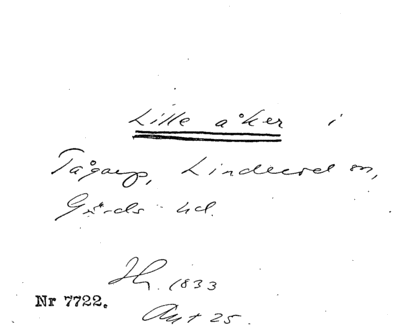 Lille åker i
Tågarp, Linderöd sn,
Gärds hd.
Jh. 1833
Nr 7722.
Ant 25.